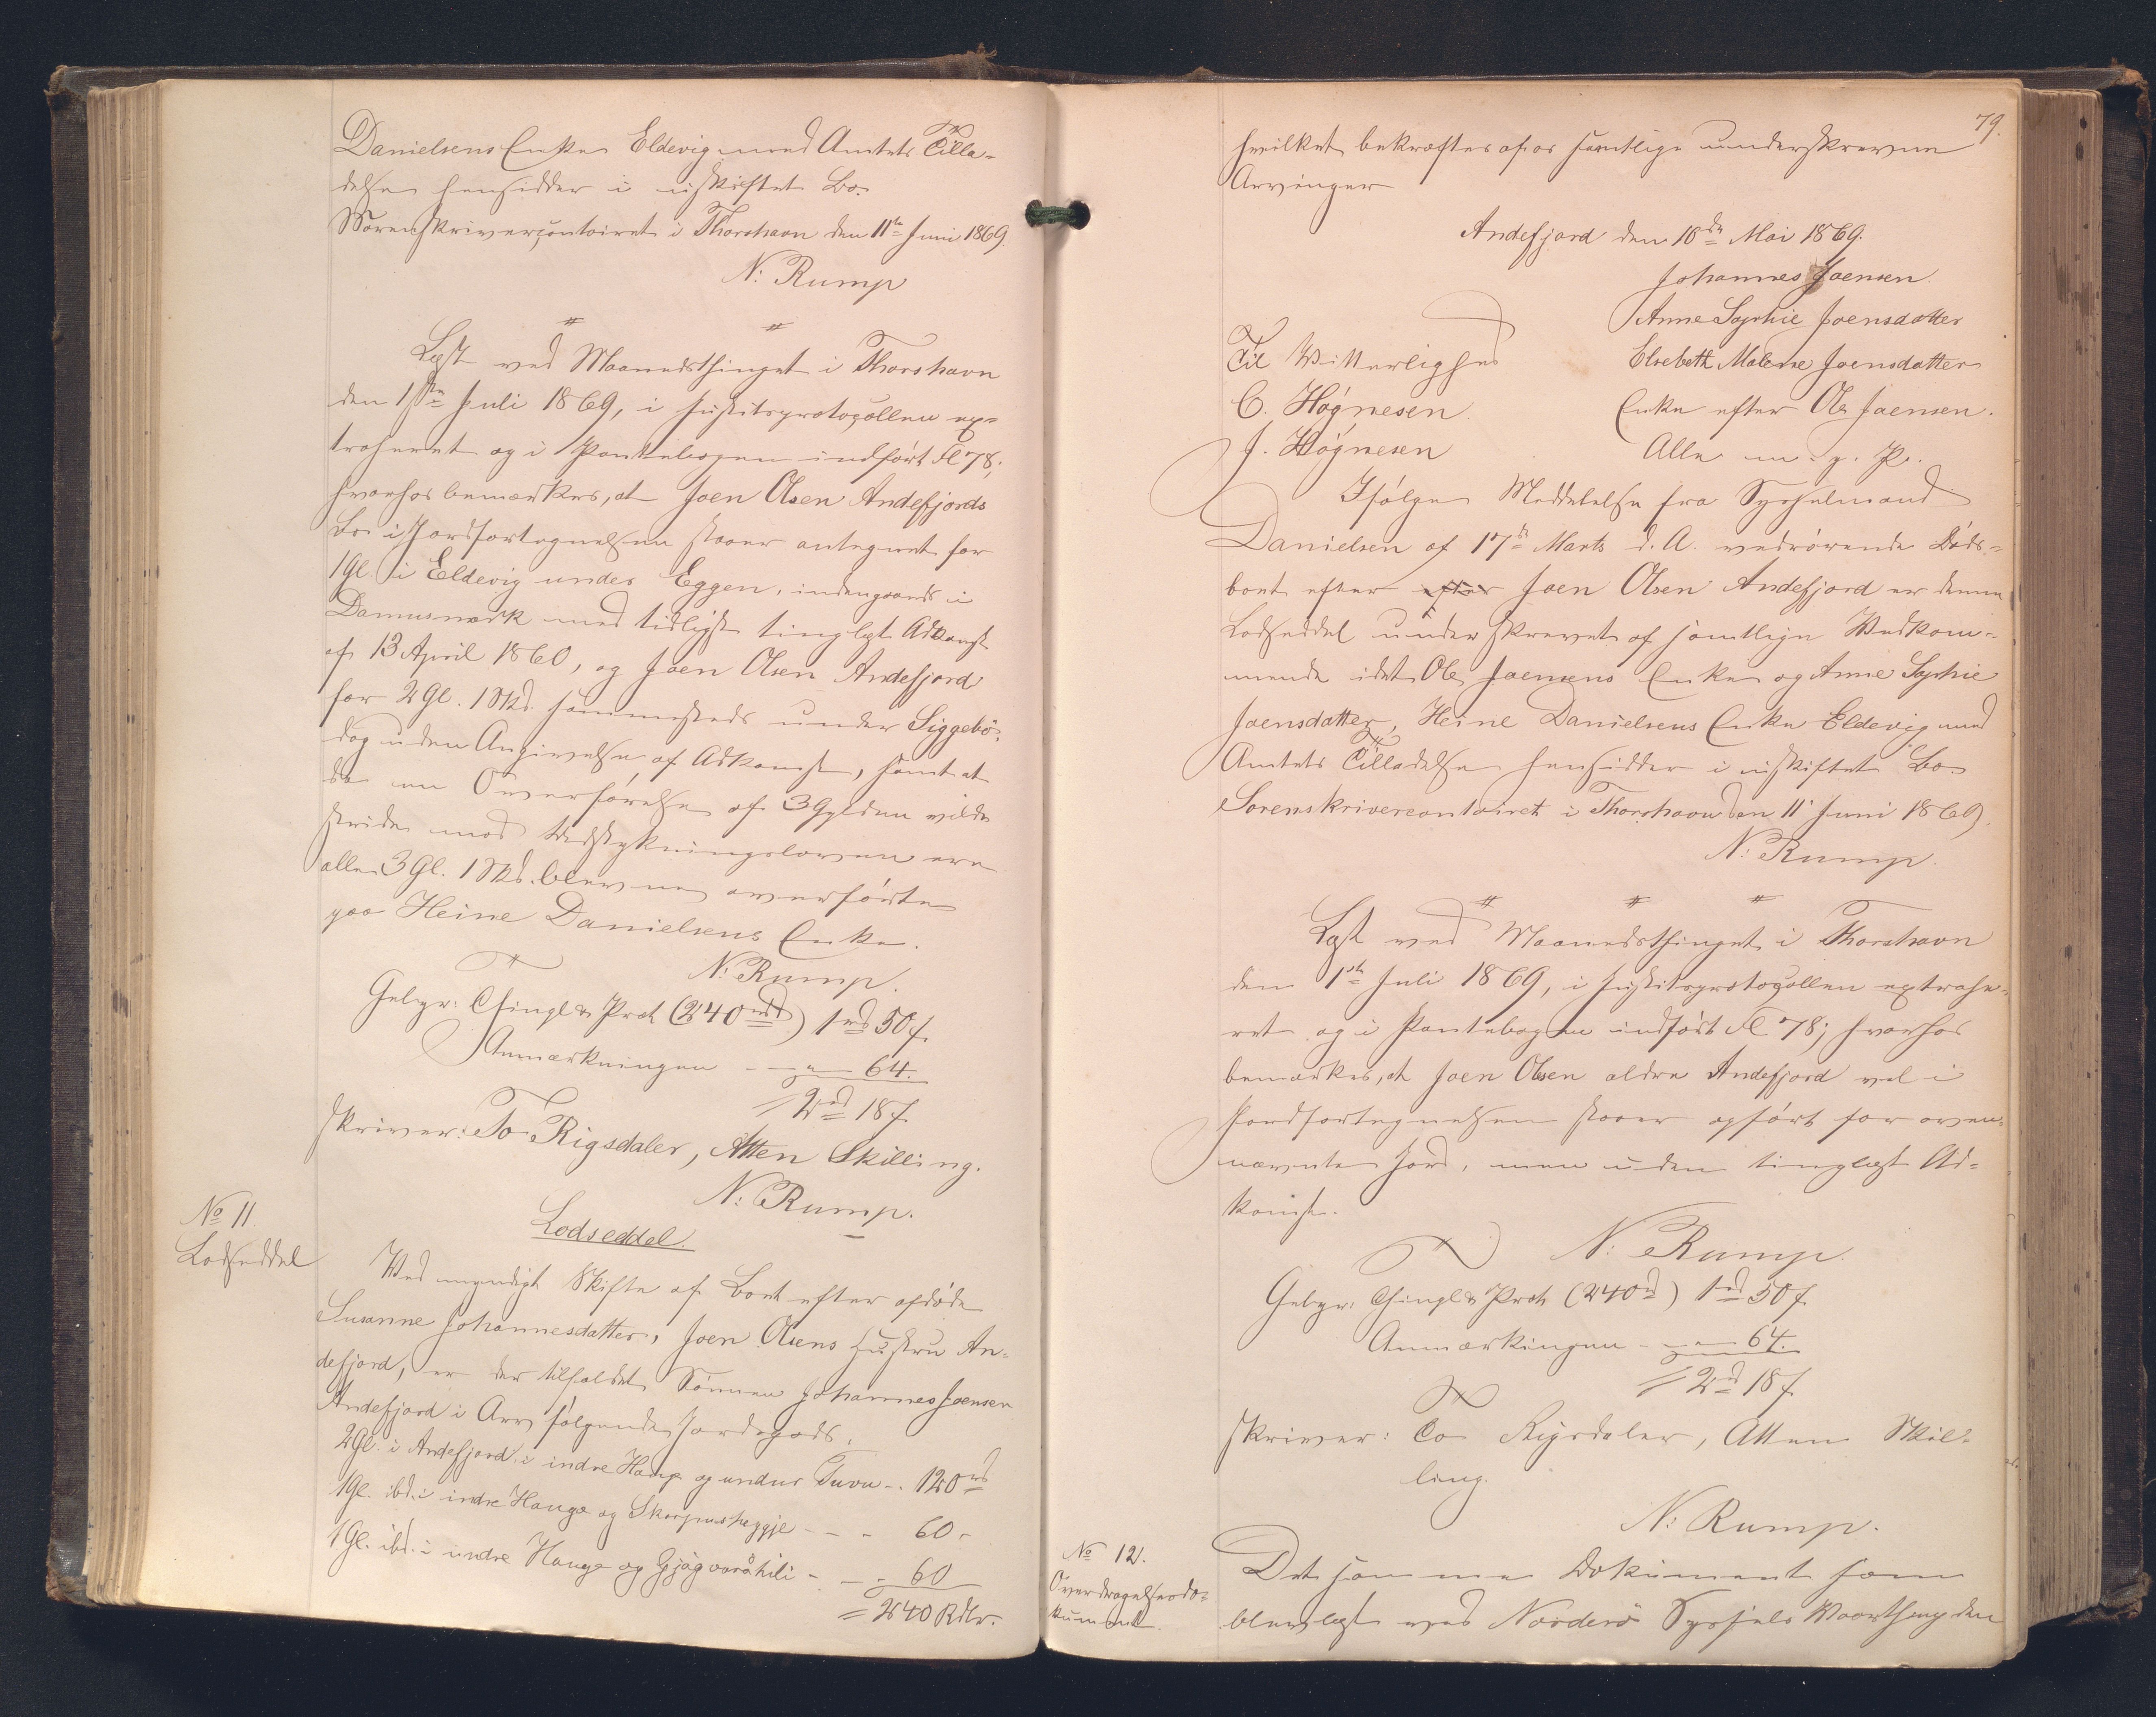 Danielsens Enke Eldevig med Amtets Tilla-
delse hensidder i uskiftet Bo.
Sorenskrivercontoiret i Thorshavn den 11te Juni 1869.
N: Rump
Læst ved Maanedsthinget i Thorshavn
den 1ste Juli 1869, i Justitsprotocollen ex-
traheret og i Pantebogen indført Fl 78;
hvorhos bemærkes, at Joen Olsen Andefjords
Bo i Jordfortegnelsen staaer antegnet for
1 Gl. i Eldevig under Eggen, indengaards i
Danmerk med tidligst tinglyst Adkomst
af 13 April 1860, og Joen Olsen Andefjord
for 2 Gl. 1 Skd. sammesteds under Siggebö,
dog uden Angivelse af Adkomst, samt at
da en Overførelse af 3 Gylden vilde
stride mod Udstykningsloven ere
alle 3 Gl. 1 Skd. blevne overførte
paa Heine Danielsens Enke.
N: Rump.
Gebyr: Thingl & Prot (240 rd) 1 rd 50 s.
Anmærkningen - - " - 64.
= 2 rd 18 s.
skriver: To Rigsdaler, Atten Skilling.
N: Rump.
No 11.
Lodseddel
Lodseddel.
Ved myndigt Skifte af Boet efter afdøde
Susanne Johannesdatter, Joen Olsens Hustru An-
defjord, er der tilfaldet Sønnen Johannes Joensen
Andefjord i Arv følgende Jordegods,
2 Gl. i Andefjord i indre Hauge og undur Tuvu -. 120 rd
1 Gl. ibd. i indre Hauge og - - - 60 -
1 Gl. ibd. i indre Hauge og - - - 60
= 240 Rdlr.
79.
hvilket bekræftes af os samtlige underskrevne
Arvinger
Andefjord den 18de Mai 1869.
Johannes Joensen.
Anne Sophie Joensdatter
Til Vitterlighed
Elsebeth Malene Joensdatter
C. Høgnesen.
Enke efter Ole Joensen.
J. Høgnesen
Alle m. p. P.
Ifølge Meddelelse fra Sysselmand
Danielsen af 17de Marts d. A. vedrørende Døds-
boet efter efter Joen Olsen Andefjord er denne
Lodseddel underskrevet af samtlige Vedkom-
mende idet Ole Joensens Enke og Anne Sophie
Joensdatter, Heine Danielsens Enke Eldevig med
Amtets Tilladelse hensidder i uskiftet Bo.
Sorenskrivercontoiret i Thorshavn den 11' Juni 1869.
N: Rump.
Læst ved Maanedsthinget i Thorshavn
den 1ste Juli 1869, i Justitsprotocollen extrahe-
ret og i Pantebogen indført Fl 78; hvorhos
bemærkes, at Joen Olsen ældre Andefjord vel i
Jordfortegnelsen staaer opført for oven-
nævnte Jord, men uden tinglæst Ad-
komst.
N: Rump.
Gebyr: Thingl & Prot (240 rd) 1 rd 50 s.
Anmærkningen - - " - 64.
= 2 rd 18 s.
skriver: To Rigsdaler, Atten Skil-
ling.
N: Rump.
No 12.
Overdragelsesdo-
kument.
Det samme Dokument som
blev læst ved Norderö Syssels Vaarthing den